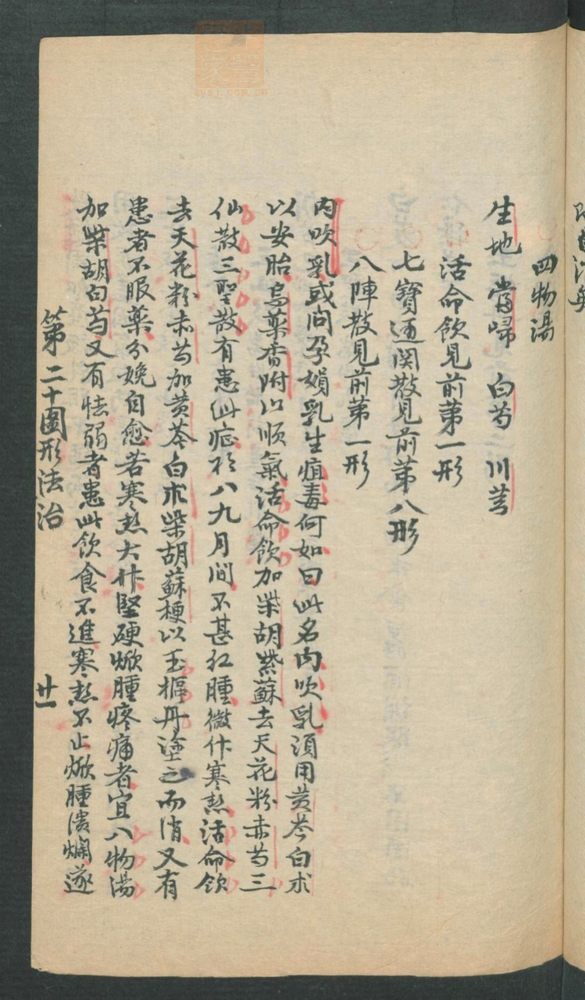 四物湯
生地 當歸 白芍 川芎
活命飲見前第一形
七寶通関散見前第八形
八陣散見前第一形
内吹乳或问孕娟乳生疽毒何如曰此名内吹乳須用黄芩白术
以安胎烏藥香附以顺氣活命飲加柴胡紫蘇去天花粉赤芍三
仙散三聖散有患此症於八九月间不甚红腫微作寒熱活命飲
去天花粉赤芍加黄芩白朮柴胡蘇梗以玉樞丹塗之而消又有
患者不服藥分娩自愈若寒熱大作堅硬焮腫疼痛者宜八物湯
加柴胡白芍又有怯弱者患此飲食不進寒熱不止焮腫潰爛遂
第二十圖形法治
廿一